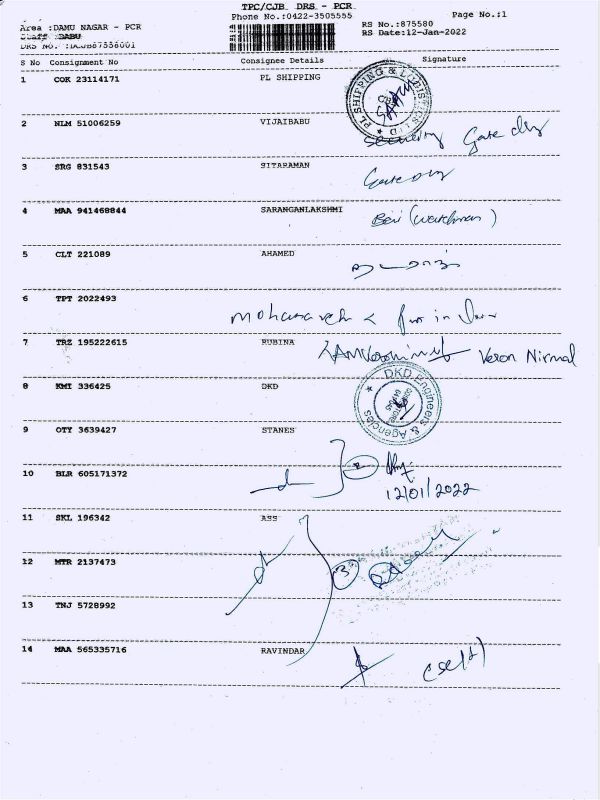 TPC/CJB DRS - PCR
Phone No.:0422-3505555
Page No.:1
Area :DAMU NAGAR - PCR
RS No.:875580
Staff :BABU
RS Date:12-Jan-2022
DRS No.
S No Consignment No Consignee Details Signature
1 COK 23114171 PL SHIPPING
PL SHIPPING & LOGISTICS LTD
2 NLM 51006259 VIJAIBABU
Security Gate
3 SRG 831543 SITARAMAN
Gate
4 MAA 941468844 SARANGANLAKSHMI
(watchman)
5 CLT 221089 AHAMED
6 TPT 2022493
7 TRZ 195222615 RUBINA
Veron Nirmal
8 KMI 336425 DKD
DKD Engineers & Agencies
9 OTY 3639427 STANES
2
10 BLR 605171372
12/01/2022
11 SKL 196342 ASS
12 MTR 2137473
3
13 TNJ 5728992
14 MAA 565335716 RAVINDAR
(self)